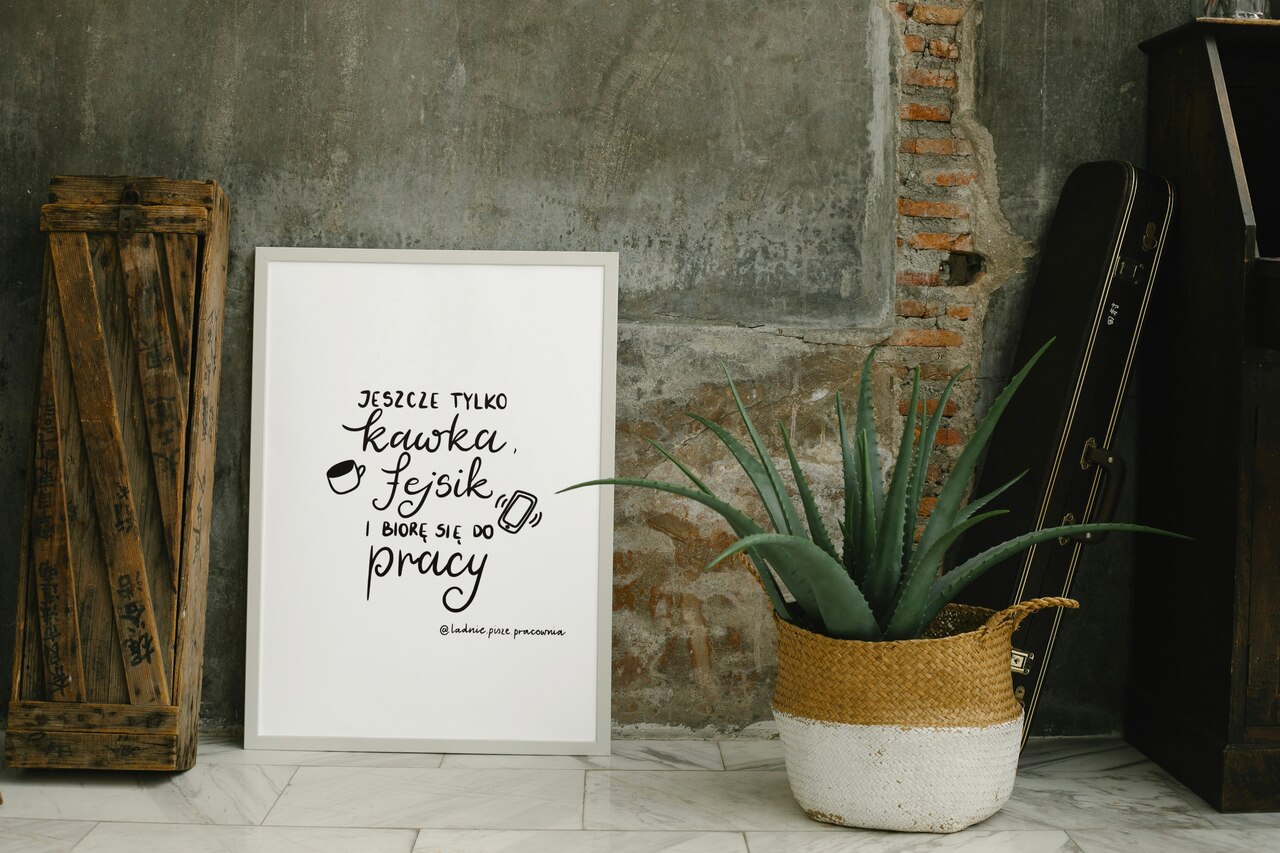 JESZCZE TYLKO
kawka,
fejsik
I BIORĘ SIĘ DO
pracy
@ladnie.pisze.pracownia